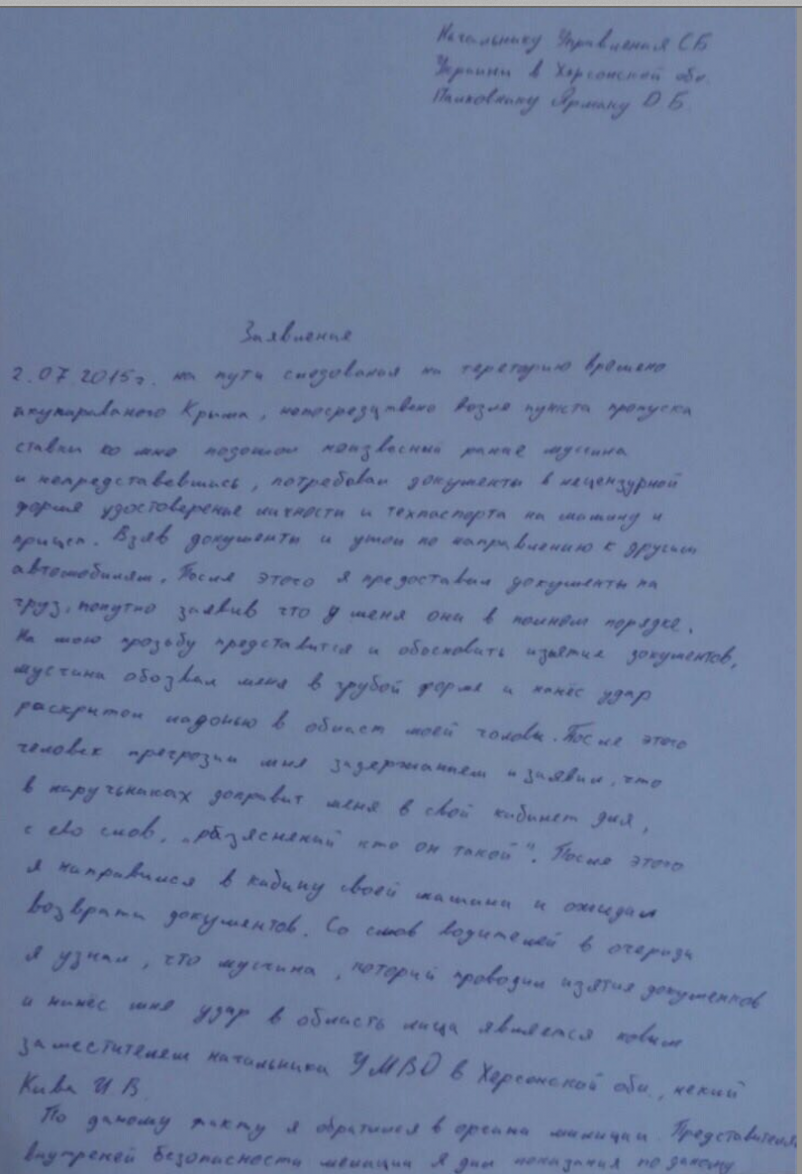 Начальнику Управления СБ
Украины в Херсонской обл.
Полковнику Ярману О.Б.
Заявление
2.07.2015г. на пути следования на тереторию времено
окупированого Крыма, непосредствено возле пункта пропуска
ко мне подошол неизвесный ранее мусчина
и непредставевшись, потребовал документы в нецензурной
форме удостоверение личности и техпаспорта на машину и
прицеп. Взяв документы и ушол по направлению к другим
автомобилям. После этого я предоставил документы на
груз, попутно заявив что у меня они в полном порядке.
На мою прозьбу представится и обосновить изятие документов,
мусчина обозвал меня в грубой форме и нанёс удар
раскрытой ладонью в област моей головы. После этого
человек пregrозил мне задержанием и заявил, что
в наручьниках доправит меня в свой кабинет для,
с ево слов, „разяснений кто он такой". После этого
я направился в кабину своей машини и ожидал
возврата документов. Со слов водителей в очереди
я узнал, что мусчина, которий проводил изятия документов
и нанёс мне удар в область лица является новым
заместителем начальника УМВД в Херсонской обл., некий
Кива И.В.
По даному факту я обратился в органи милиции. Представителям
внутреней безопасности милиции я дал показания по даному